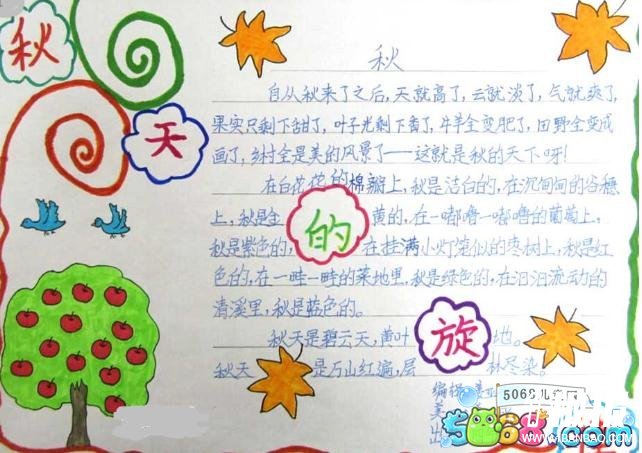 秋
天
的
旋
秋
自从秋来了之后，天就高了，云就淡了，气就爽了，
果实只剩下甜了，叶子光剩下香了，牛羊全变肥了，田野全变成
画了，乡村全是美的风景了——这就是秋的天下呀！
在白花花的棉瓣上，秋是洁白的，在沉甸甸的谷穗
上，秋是金黄的，在一嘟噜一嘟噜的葡萄上，
秋是紫色的，在挂满小灯笼似的枣树上，秋是红
色的，在一畦一畦的菜地里，秋是绿色的，在汩汩流动的
清溪里，秋是蓝色的。
秋天是碧云天，黄叶地。
秋天是万山红遍，层林尽染。
编辑
美
出
5068儿童网
5068.com
www.1BANBAO.com